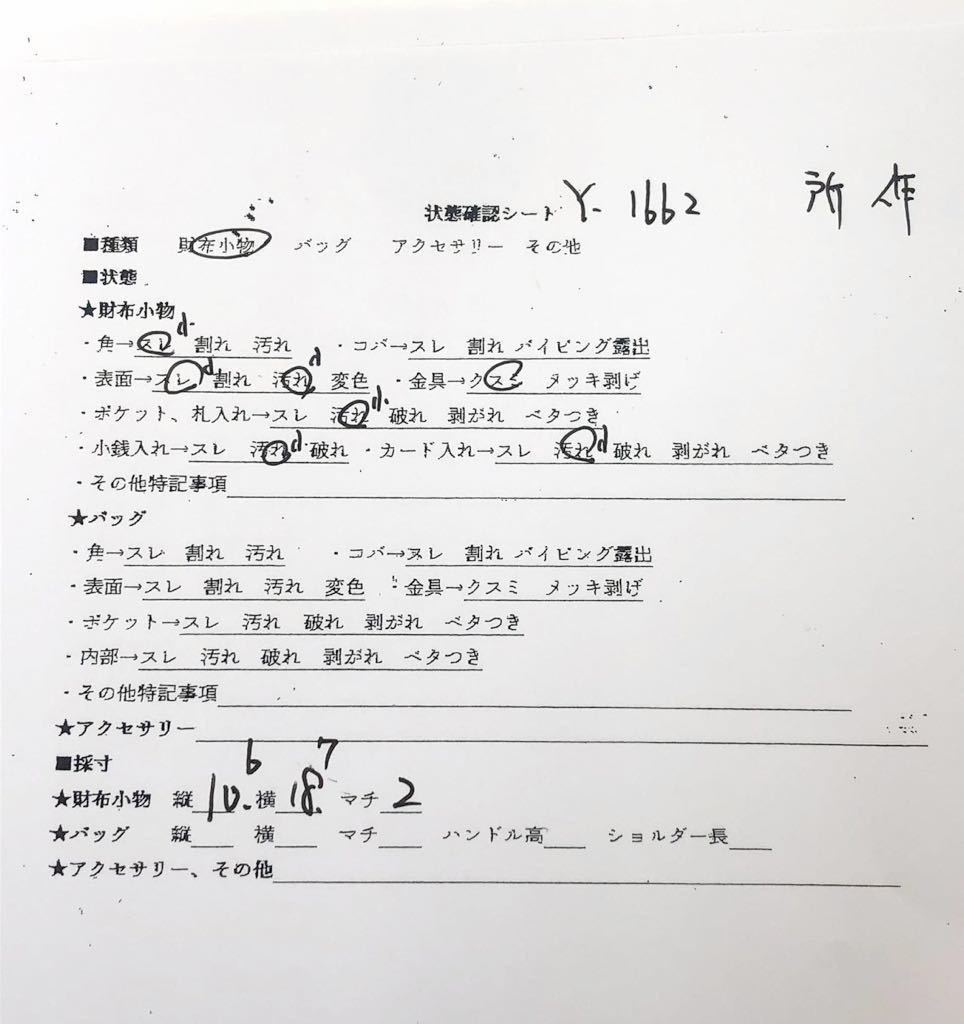 状態確認シート Y- 1662 所 作
■種類 財布小物 バッグ アクセサリー その他
■状態
★財布小物
・角→スレd 割れ 汚れ ・コバ→スレ 割れ パイピング露出
・表面→スレd 割れ 汚れd 変色 ・金具→クスミ メッキ剥げ
・ポケット、札入れ→スレ 汚れd 破れ 剥がれ ベタつき
・小銭入れ→スレ 汚れd 破れ ・カード入れ→スレ 汚れd 破れ 剥がれ ベタつき
・その他特記事項
★バッグ
・角→スレ 割れ 汚れ ・コバ→スレ 割れ パイピング露出
・表面→スレ 割れ 汚れ 変色 ・金具→クスミ メッキ剥げ
・ポケット→スレ 汚れ 破れ 剥がれ ベタつき
・内部→スレ 汚れ 破れ 剥がれ ベタつき
・その他特記事項
★アクセサリー
■採寸
★財布小物 縦 10.6 横 18.7 マチ 2
★バッグ 縦 横 マチ ハンドル高 ショルダー長
★アクセサリー、その他